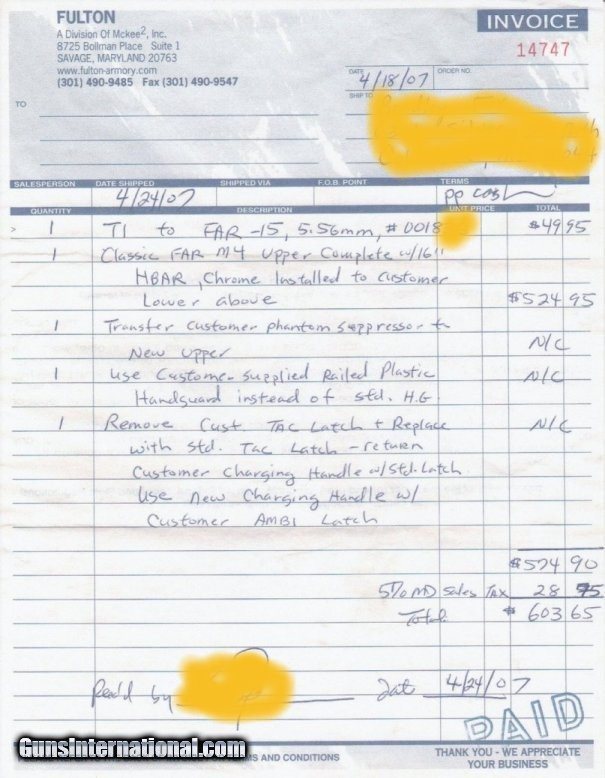 FULTON
A Division Of Mckee², Inc.
8725 Bollman Place Suite 1
SAVAGE, MARYLAND 20763
www.fulton-armory.com
(301) 490-9485 Fax (301) 490-9547
INVOICE
14747
DATE 4/18/07 ORDER NO.
TO
SHIP TO
SALESPERSON DATE SHIPPED SHIPPED VIA F.O.B. POINT TERMS
4/24/07 pp cash
QUANTITY DESCRIPTION UNIT PRICE TOTAL
1 T1 to FAR-15, 5.56mm, #0018 $49.95
1 Classic FAR M4 Upper Complete w/16"
HBAR, Chrome Installed to customer
Lower above $524 95
1 Transfer Customer phantom suppressor to
New upper N/C
1 Use Customer supplied Railed Plastic N/C
Handguard instead of std. H.G.
1 Remove Cust TAC Latch + Replace N/C
with std. Tac Latch - return
Customer Charging Handle w/std. Latch.
Use New Charging Handle w/
Customer AMBI Latch
$574 90
5% MD Sales Tax 28 75
Total $603 65
Rec'd by Dat 4/24/07
PAID
GunsInternational.com
MS AND CONDITIONS
THANK YOU - WE APPRECIATE
YOUR BUSINESS